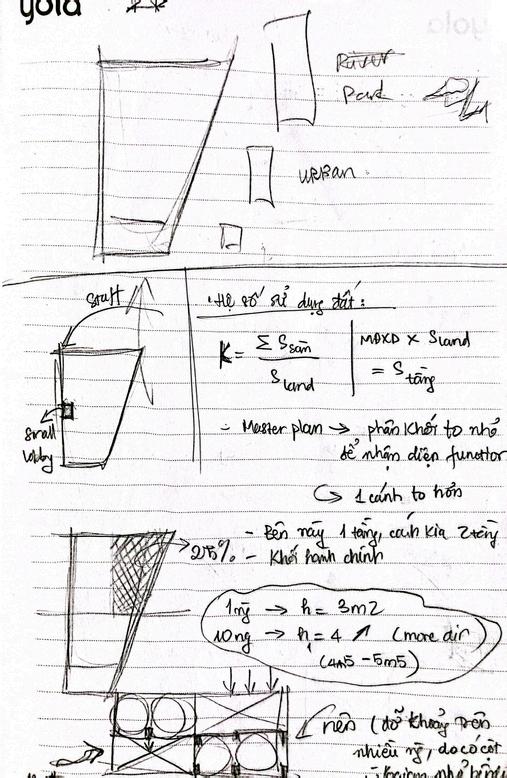 yola
River
Park
URBAN
Staff
Hệ số sử dụng đất:
K = Σ S sàn / S land
MĐXD × S land
= S tầng
- Master plan → phân khối to nhỏ
để nhận diện function
↪ 1 cánh to hơn
small
lobby
- Bên này 1 tầng, cánh kia 2 tầng
→ 25%
- Khối hành chính
1 ng → h = 3m2
10 ng → h = 4 ↗ (more air)
(4m5 - 5m5)
nên (đỡ khoảng trên
nhiều ng, do có cột